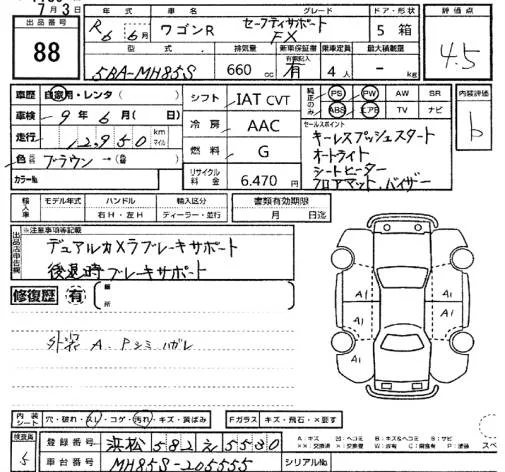 7月3日
出品番号 88
年式 R6 6月
車名 ワゴンR
グレード セーフティサポート FX
ドア・形状 5 箱
評価点 4.5
型式 5BA-MH85S
排気量 660 cc
新車保証書 有 記録簿有
乗車定員 4人
最大積載量 -kg
車歴 自家用・レンタ( )
シフト IAT CVT
純正のみ PS PW AW SR
ABS エアB TV ナビ
内装評価 b
車検 9年6月( 日)
冷房 AAC
セールスポイント
キーレスプッシュスタート
オートライト
シートヒーター
フロアマット、バイザー
走行 12,950 km マイル
燃料 G
色 ブラウン→( )
カラーNo.
リサイクル料金 6.470円
輸入車 モデル年式 ハンドル 輸入区分 書類有効期限
右H・左H ディーラー・並行 月 日迄
出品店申告欄
※注意事項等記載
デュアルカメラブレーキサポート
後退時ブレーキサポート
修復歴 有 箇所
外装 A、Pシミ ハガレ
A1 A1
A1 A1
内装シート 穴・破れ・スレ・コゲ・汚れ・キズ・黄ばみ
Fガラス キズ・飛石・×要す
検査員 5
登録番号 浜松582え5530
車台番号 MH85S-205555
シリアルNo.
A:キズ
××:交換済 ×:交換要